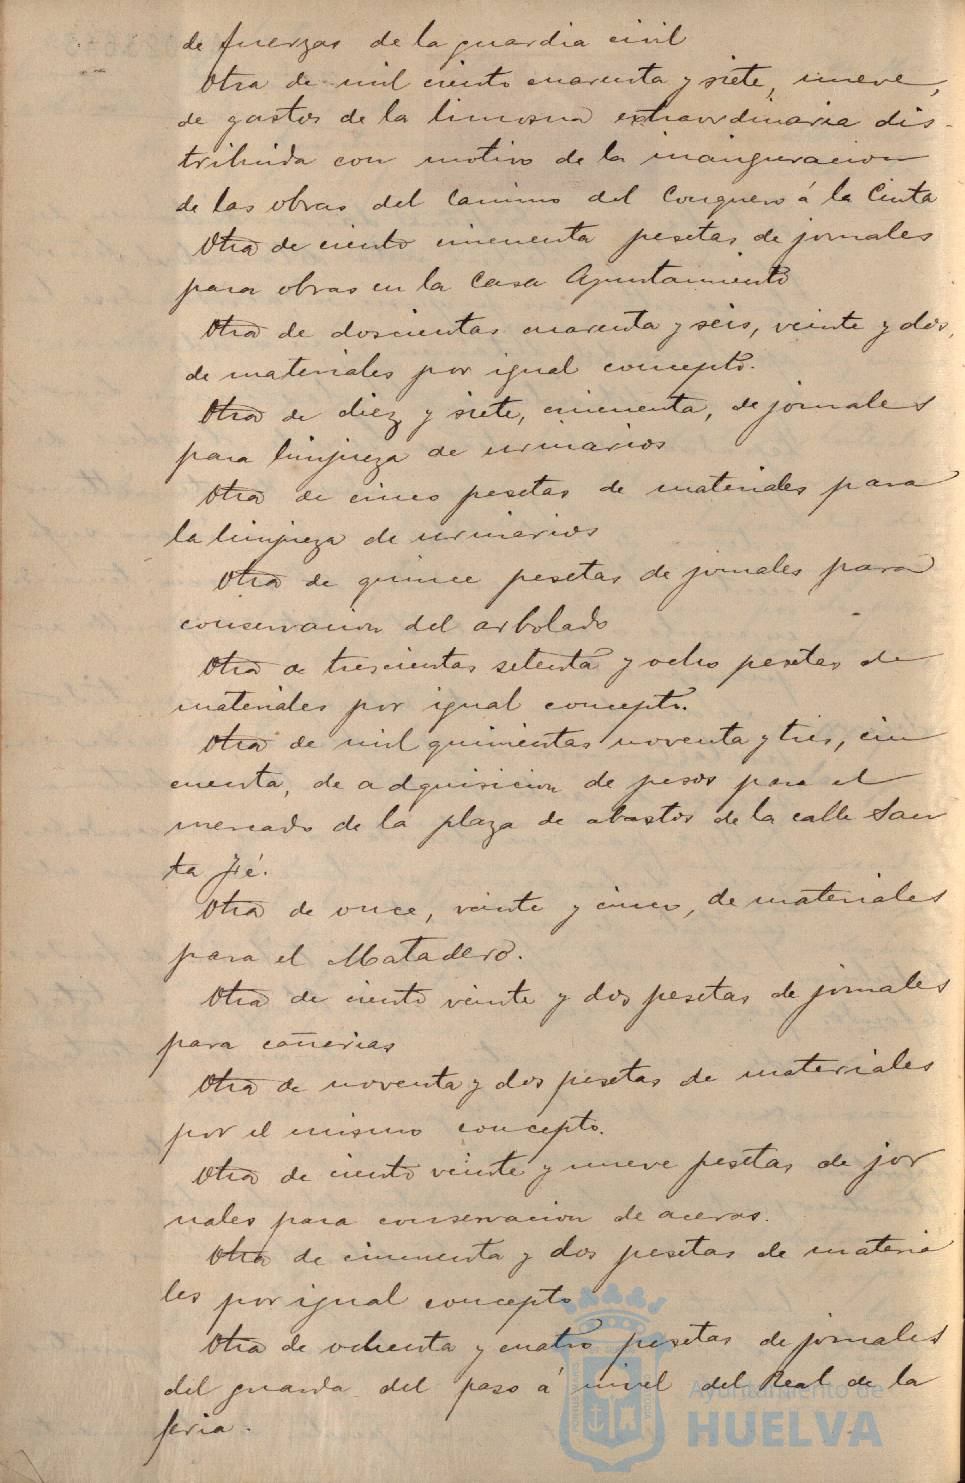 de fuerzas de la guardia civil
Otra de mil ciento cuarenta y siete, nueve,
de gastos de la limosna extraordinaria dis-
tribuida con motivo de la inauguracion
de las obras del Camino del Conquero á la Cinta
Otra de ciento cincuenta pesetas de jornales
para obras en la Casa Ayuntamiento
Otra de doscientas cuarenta y seis, veinte y dos,
de materiales por igual concepto.
Otra de diez y siete, cincuenta, de jornales
para limpieza de urinarios
Otra de cinco pesetas de materiales para
la limpieza de urinarios
Otra de quince pesetas de jornales para
conservacion del arbolado
Otra de trescientas setenta y ocho pesetas de
materiales por igual concepto.
Otra de mil quinientas noventa y tres, cin
cuenta, de adquisicion de pesos para el
mercado de la plaza de abastos de la calle San
ta Fé.
Otra de once, veinte y cinco, de materiales
para el Matadero.
Otra de ciento veinte y dos pesetas de jornales
para cañerias
Otra de noventa y dos pesetas de materiales
por el mismo concepto.
Otra de ciento veinte y nueve pesetas de jor
nales para conservacion de aceras.
Otra de cincuenta y dos pesetas de materia
les por igual concepto
Otra de ochenta y cuatro pesetas de jornales
del guarda del paso á nivel del Real de la
feria.
Ayuntamiento de
HUELVA